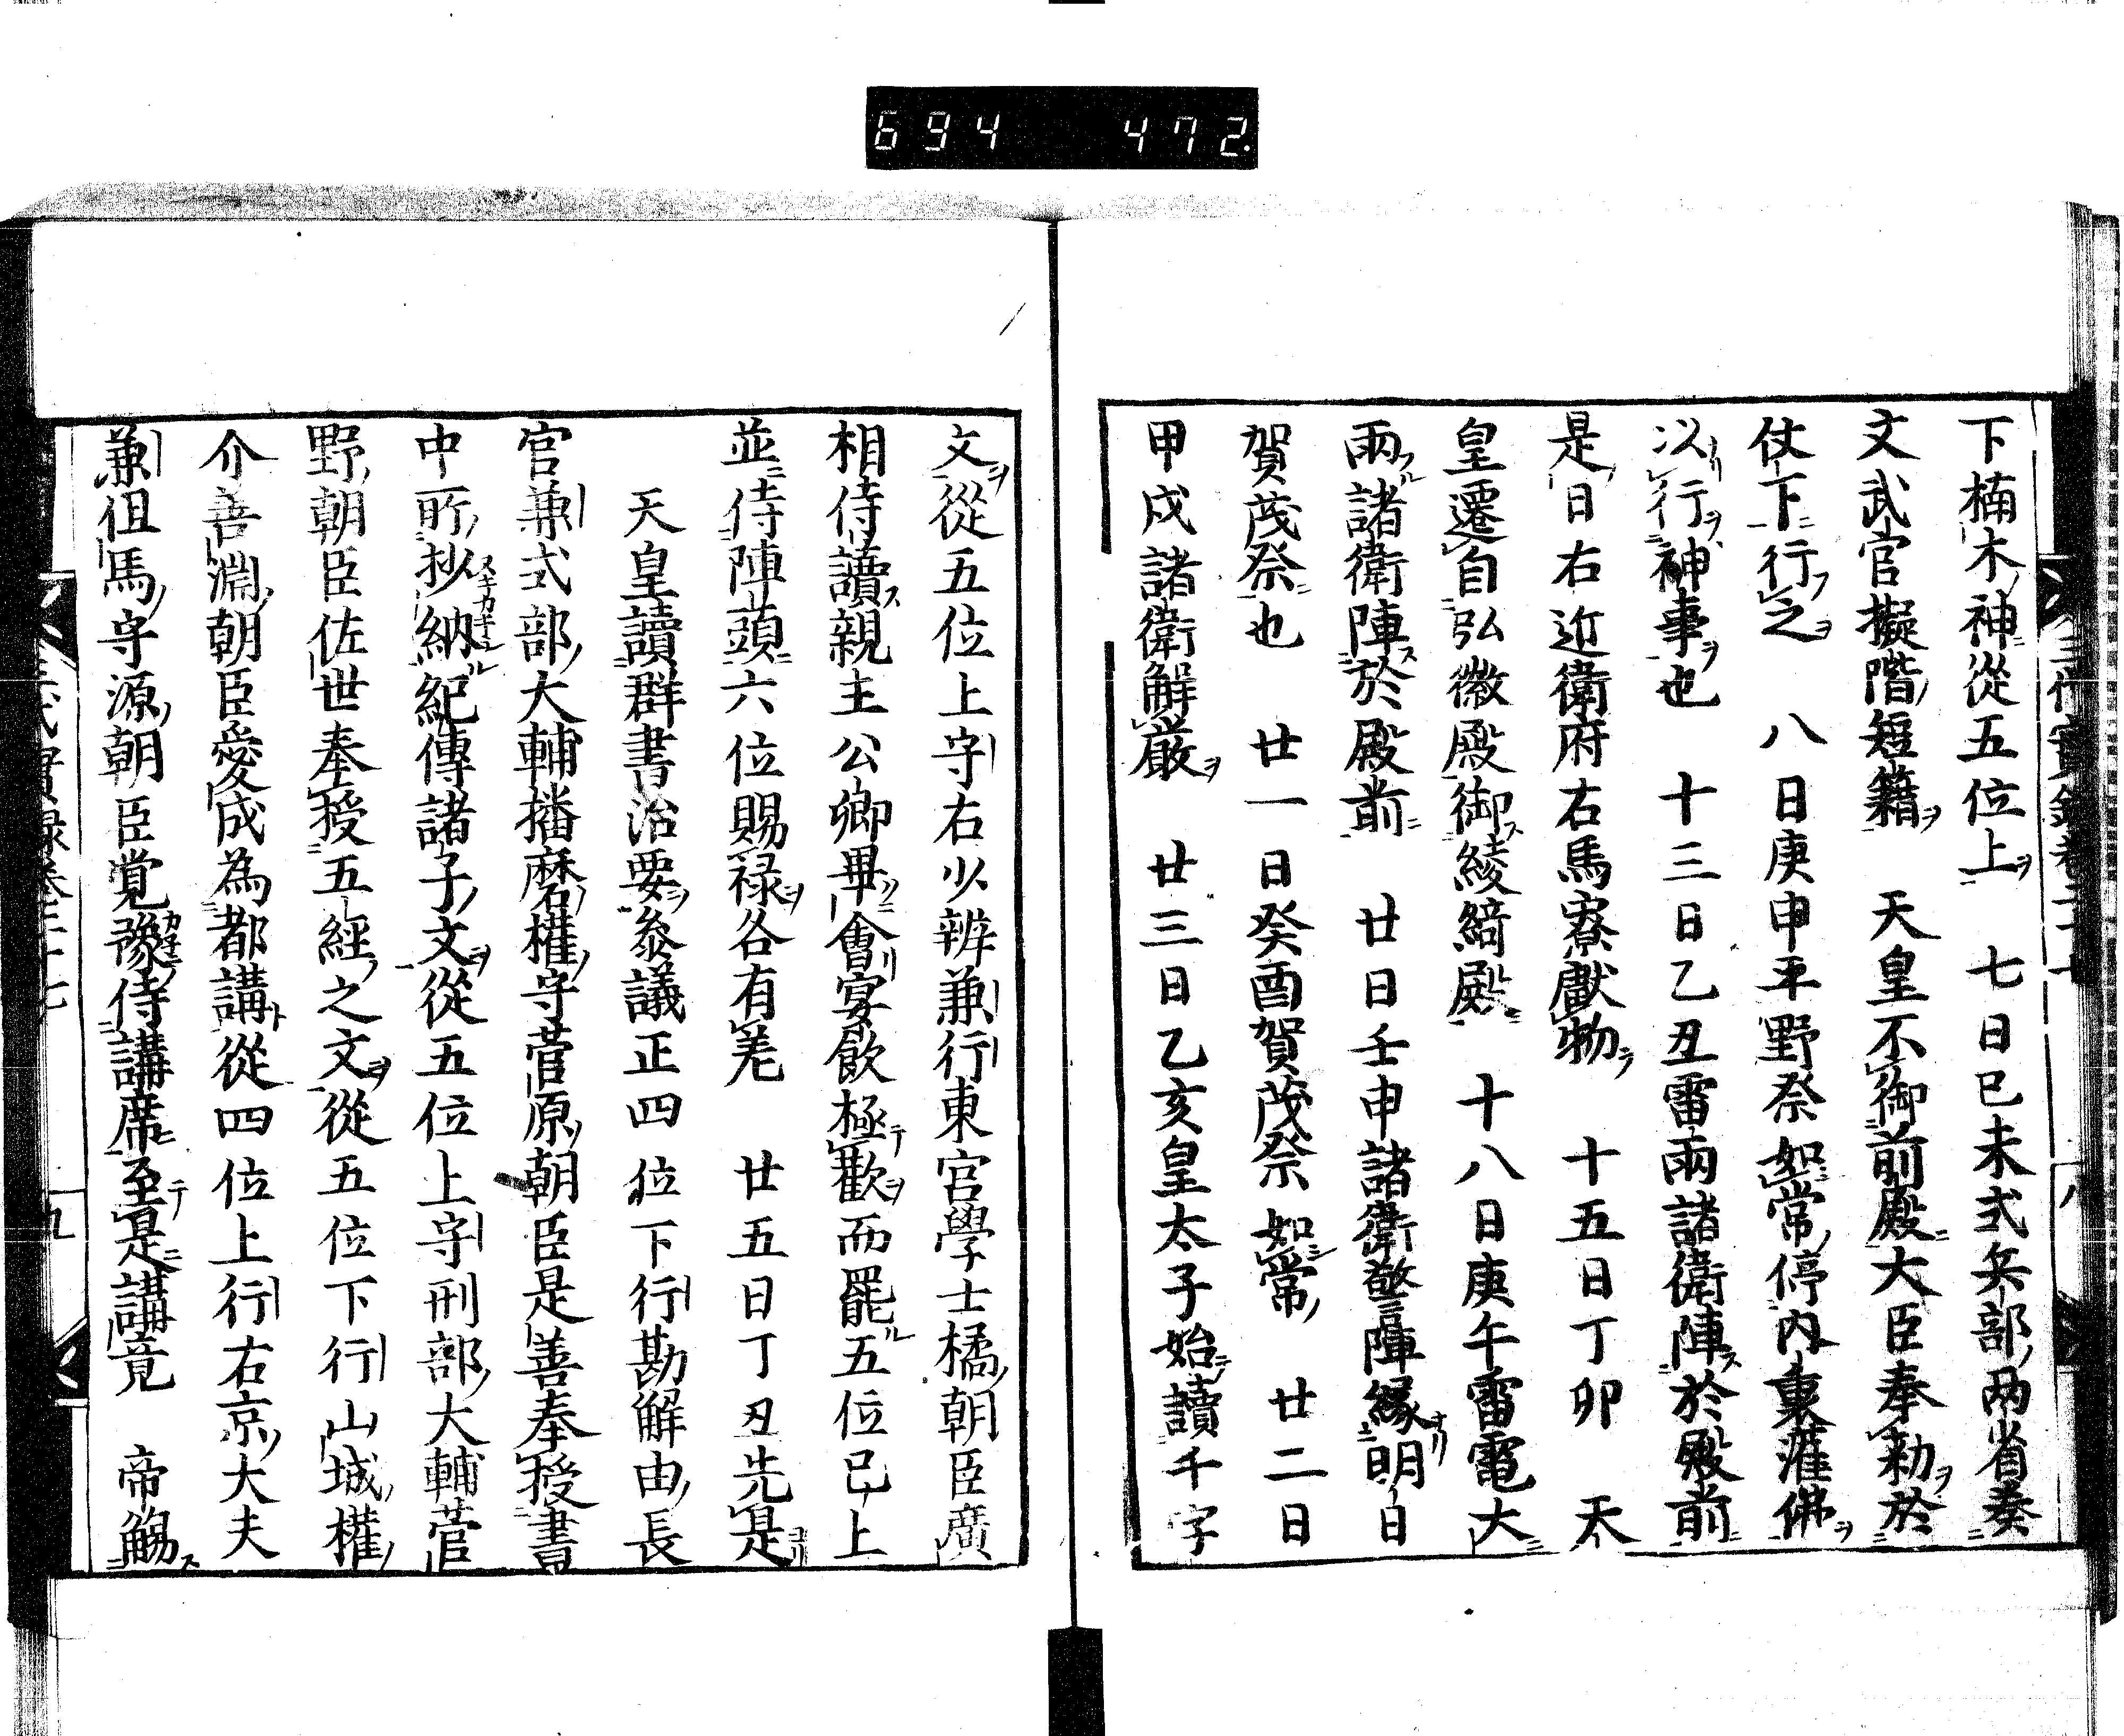 694 472.
下楠木神從五位上 七日已未式兵部兩省奏
文武官擬階短籍 天皇不御前殿大臣奉勅於
仗下行之 八日庚申平野祭如常停内裏灌佛
以行神事也 十三日乙丑雷雨諸衛陣於殿前
是日右近衛府右馬寮獻物 十五日丁卯 天
皇遷自弘徽殿御綾綺殿 十八日庚午雷電大
雨諸衛陣於殿前 廿日壬申諸衛警陣緣明日
賀茂祭也 廿一日癸酉賀茂祭如常 廿二日
甲戌諸衛解嚴 廿三日乙亥皇太子始讀千字
文從五位上守右少辨兼行東宮學士橘朝臣廣
相侍讀親王公卿畢會宴飲極歡而罷五位已上
並侍陣頭六位賜祿各有差 廿五日丁丑先是
天皇讀群書治要參議正四位下行勘解由長
官兼式部大輔播磨權守菅原朝臣是善奉授書
中所抄納紀傳諸子文從五位上守刑部大輔菅
野朝臣佐世奉授五經之文從五位下行山城權
介善淵朝臣愛成為都講從四位上行右京大夫
兼但馬守源朝臣覚豫侍講席至是講竟 帝觴
三代實録卷二十七
九